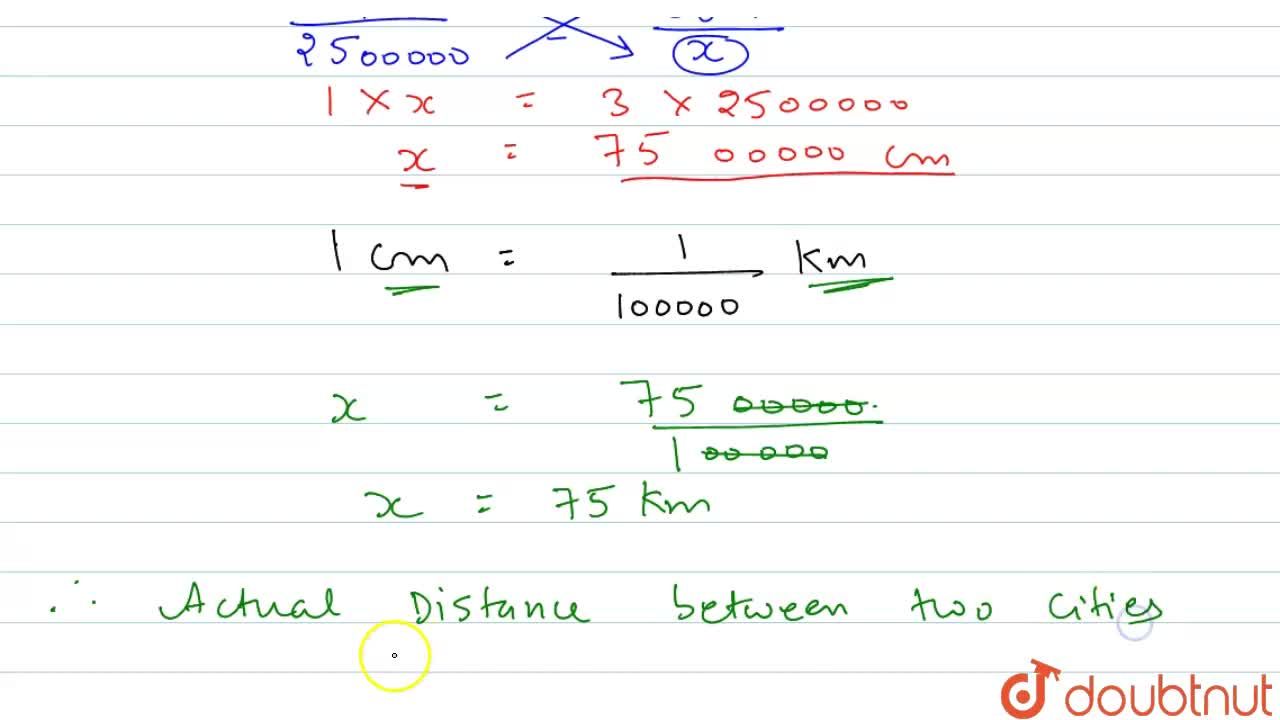 2500000 x
1 × x = 3 × 2500000
x = 75 00000 cm
1 cm = 1 km
100000
x = 75 00000
1 00000
x = 75 km
∴ Actual Distance between two cities
doubtnut